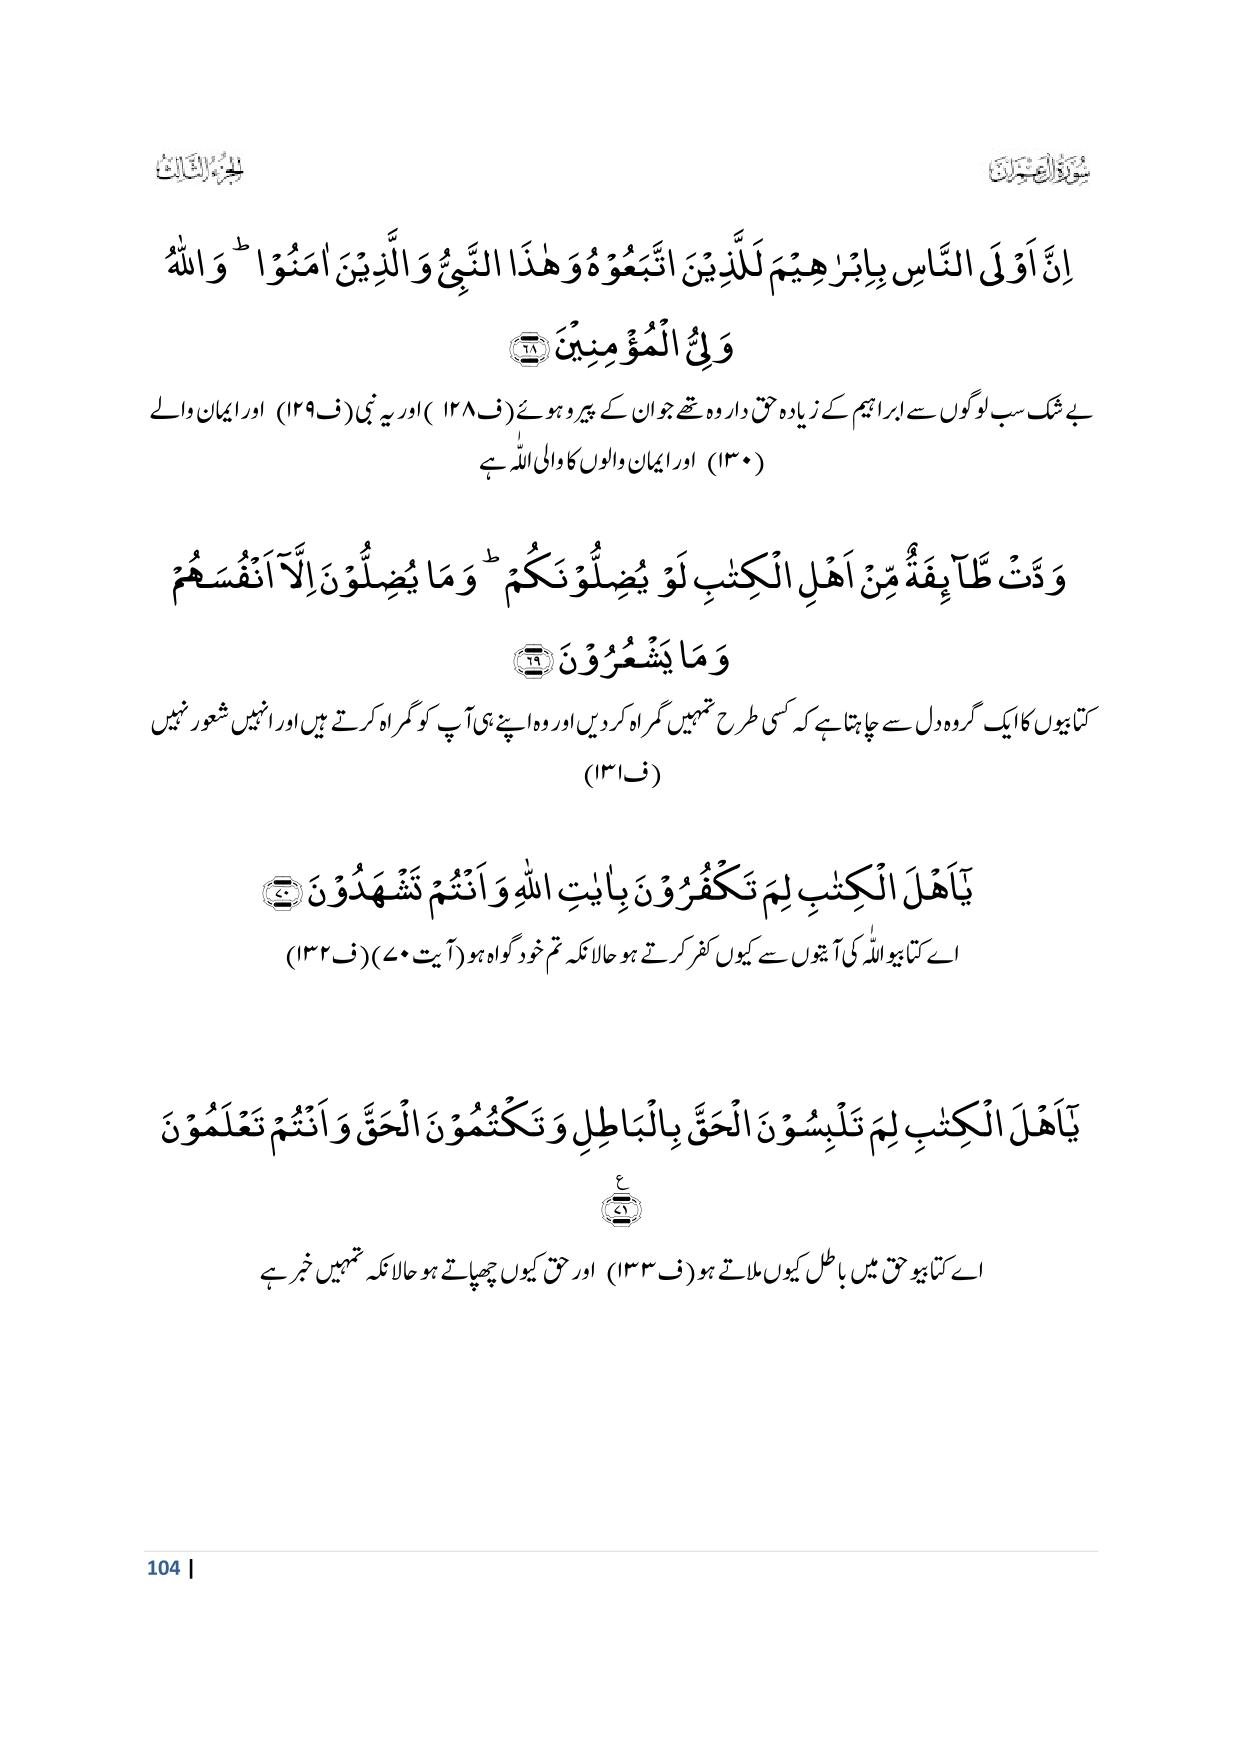 سُوْرَۃُ اٰلِ عِمْرَان
الجزء الثالث
اِنَّ اَوْلَی النَّاسِ بِاِبْرٰهِیْمَ لَلَّذِیْنَ اتَّبَعُوْهُ وَ هٰذَا النَّبِیُّ وَ الَّذِیْنَ اٰمَنُوْا ؕ وَ اللّٰهُ
وَلِیُّ الْمُؤْمِنِیْنَ ﴿۶۸﴾
بے شک سب لوگوں سے ابراہیم کے زیادہ حق دار وہ تھے جو ان کے پیرو ہوئے (ف۱۲۸ )اور یہ نبی (ف۱۲۹) اور ایمان والے
(۱۳۰) اور ایمان والوں کا والی اللّٰہ ہے
وَدَّتْ طَّآىِٕفَةٌ مِّنْ اَهْلِ الْكِتٰبِ لَوْ یُضِلُّوْنَكُمْ ؕ وَ مَا یُضِلُّوْنَ اِلَّاۤ اَنْفُسَهُمْ
وَ مَا یَشْعُرُوْنَ ﴿۶۹﴾
کتابیوں کا ایک گروہ دل سے چاہتا ہے کہ کسی طرح تمہیں گمراہ کردیں اور وہ اپنے ہی آپ کو گمراہ کرتے ہیں اور انہیں شعور نہیں
(ف۱۳۱)
یٰۤاَهْلَ الْكِتٰبِ لِمَ تَكْفُرُوْنَ بِاٰیٰتِ اللّٰهِ وَ اَنْتُمْ تَشْهَدُوْنَ ﴿۷۰﴾
اے کتابیو اللّٰہ کی آیتوں سے کیوں کفر کرتے ہو حالانکہ تم خود گواہ ہو (آیت ۷۰)(ف۱۳۲)
یٰۤاَهْلَ الْكِتٰبِ لِمَ تَلْبِسُوْنَ الْحَقَّ بِالْبَاطِلِ وَ تَكْتُمُوْنَ الْحَقَّ وَ اَنْتُمْ تَعْلَمُوْنَ
﴿۷۱﴾ ع
اے کتابیو حق میں باطل کیوں ملاتے ہو (ف۱۳۳) اور حق کیوں چھپاتے ہو حالانکہ تمہیں خبر ہے
104 |